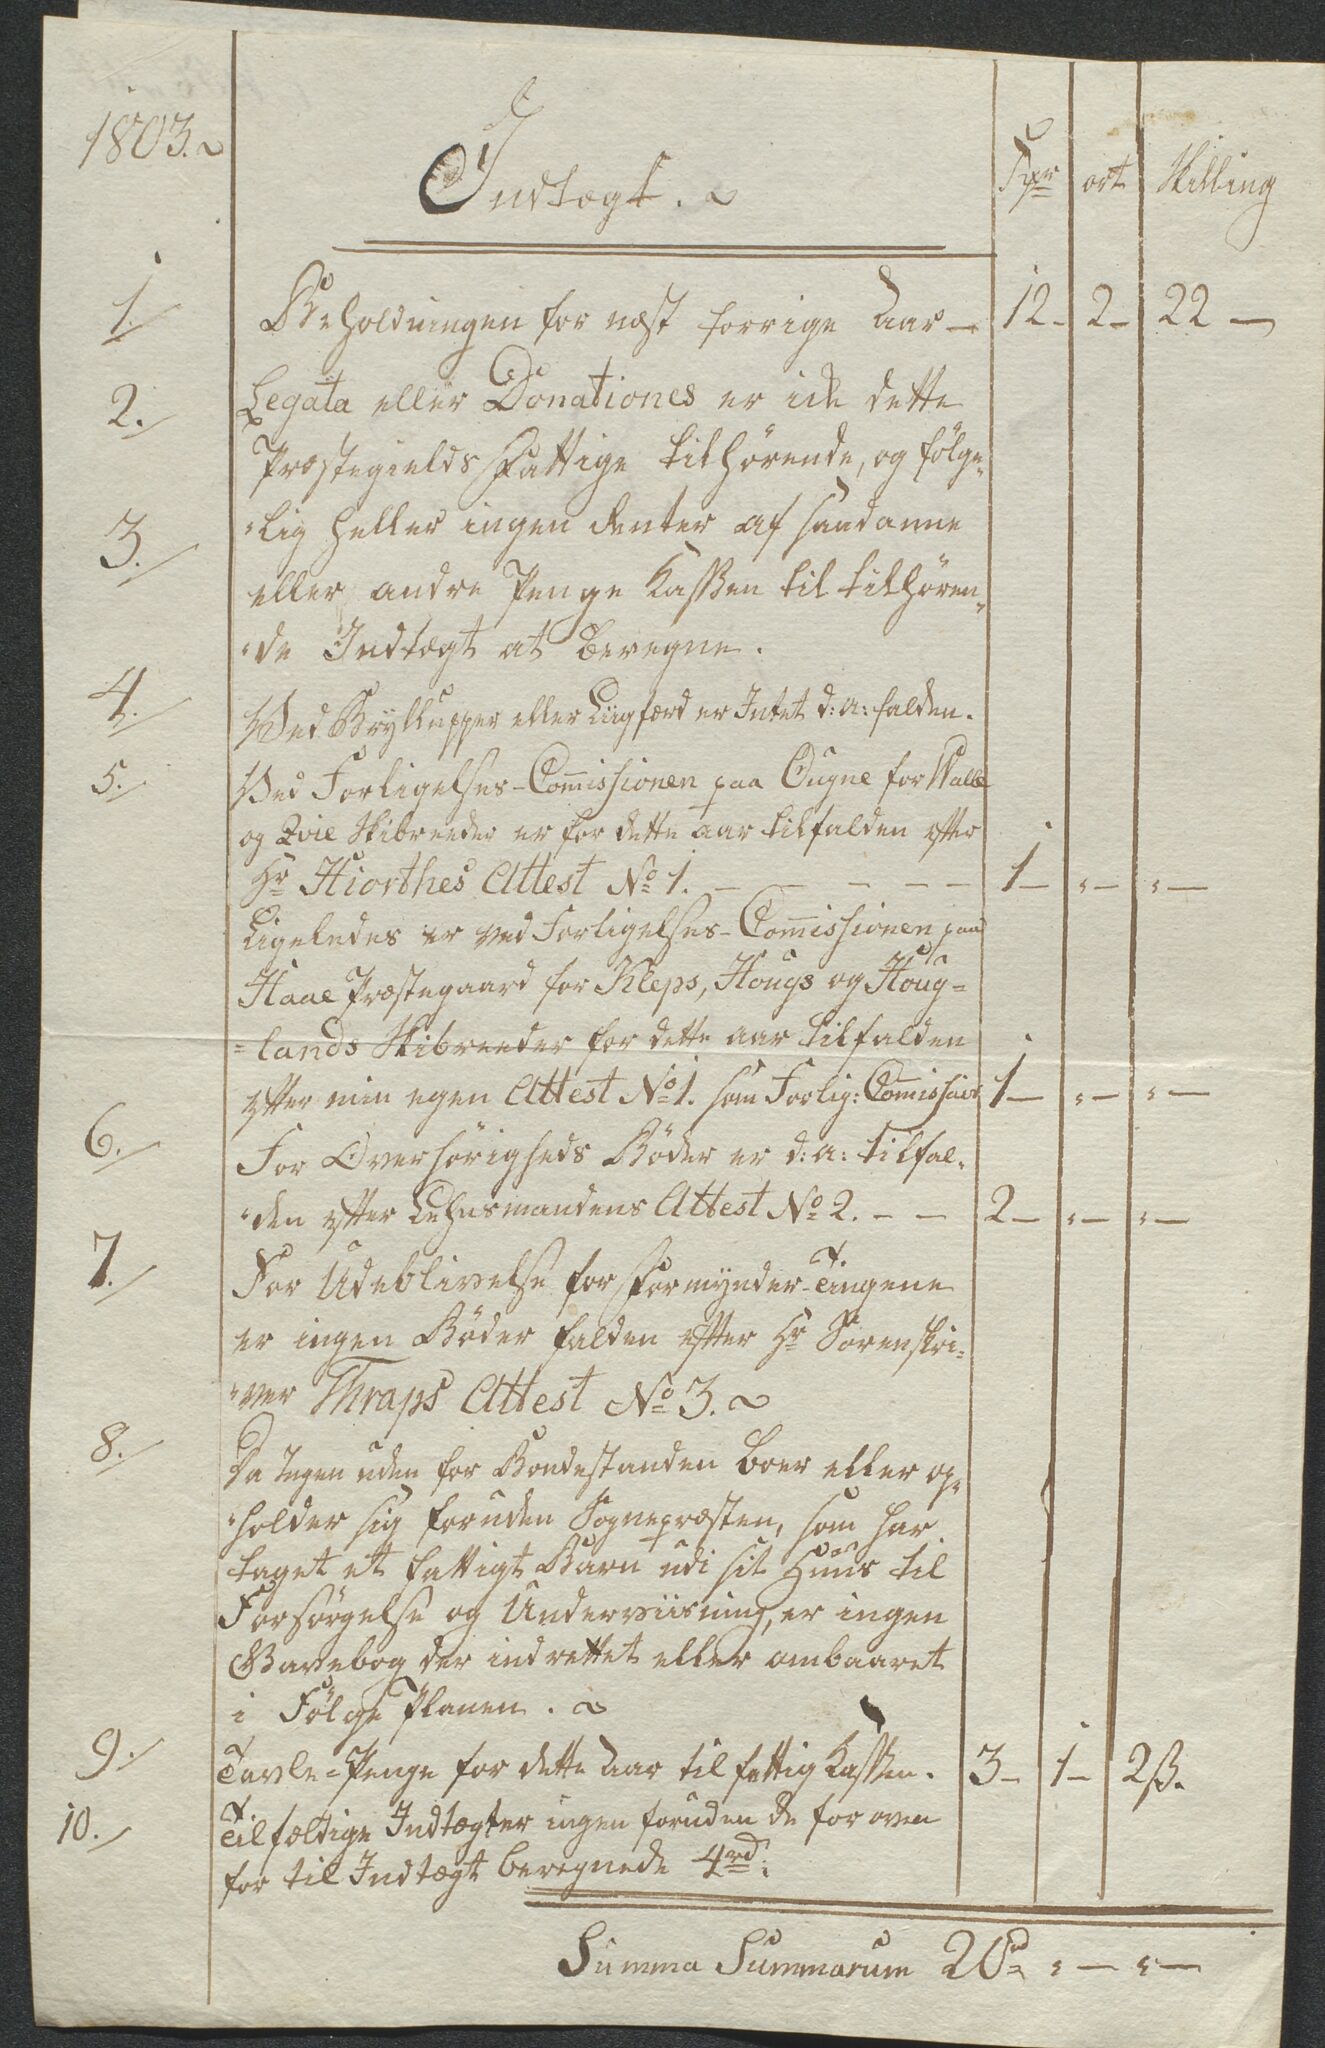 1803.
Indtægt.
Rdr ort Skilling
1. Beholdningen for næst forrige Aar — 12 – 2 – 22 —
2. Legata eller Donationes er icke dette
Præstegields Fattige tilhørende, og følge-
3. -lig heller ingen Renter af saadanne
eller andre Penge Kassen til tilhøren-
-de Indtægt at beregne.
4. Ved Bryllupper eller Liigfærd er Intet d: a: falden.
5. Ved Forligelses-Commissionen paa Ougne for
og Qvie Skibreeder er for dette aar tilfalden efter
Hr Hiorthes Attest No 1. – – – – – 1 — „ — „ —
Ligeledes er ved Forligelses-Commissionen paa
Haae Præstegaard for Kleps, Hougs og Houg=
=lands Skibreeder for dette aar tilfalden
efter min egen Attest No 1. som Forlig: Comissair 1 — „ — „ —
6. For Overhørigheds Bøder er d: a: tilfal-
-den efter Lehnsmandens Attest No 2. – – 2 — „ — „ —
7. For Udeblivelse for Formynder-Tingene
er ingen Bøder falden efter Hr Sorenskri-
-ver Thraps Attest No 3.
8. Da Ingen uden for Bondestanden boer eller op-
-holder sig foruden Sognepræsten, som har
taget et fattigt Barn udi sit Huus til
Forsørgelse og Underviisning, er ingen
Gavebog der indrettet eller ombaaret
i Følge Planen.
9. Tavle-Penge for dette Aar til fattig Kassen. 3 – 1 – 2 ß.
10. Tilfældige Indtægter ingen foruden de for oven
for til Indtægt beregnede 4 rd:
Summa Summarum 20 rd „ — „ —